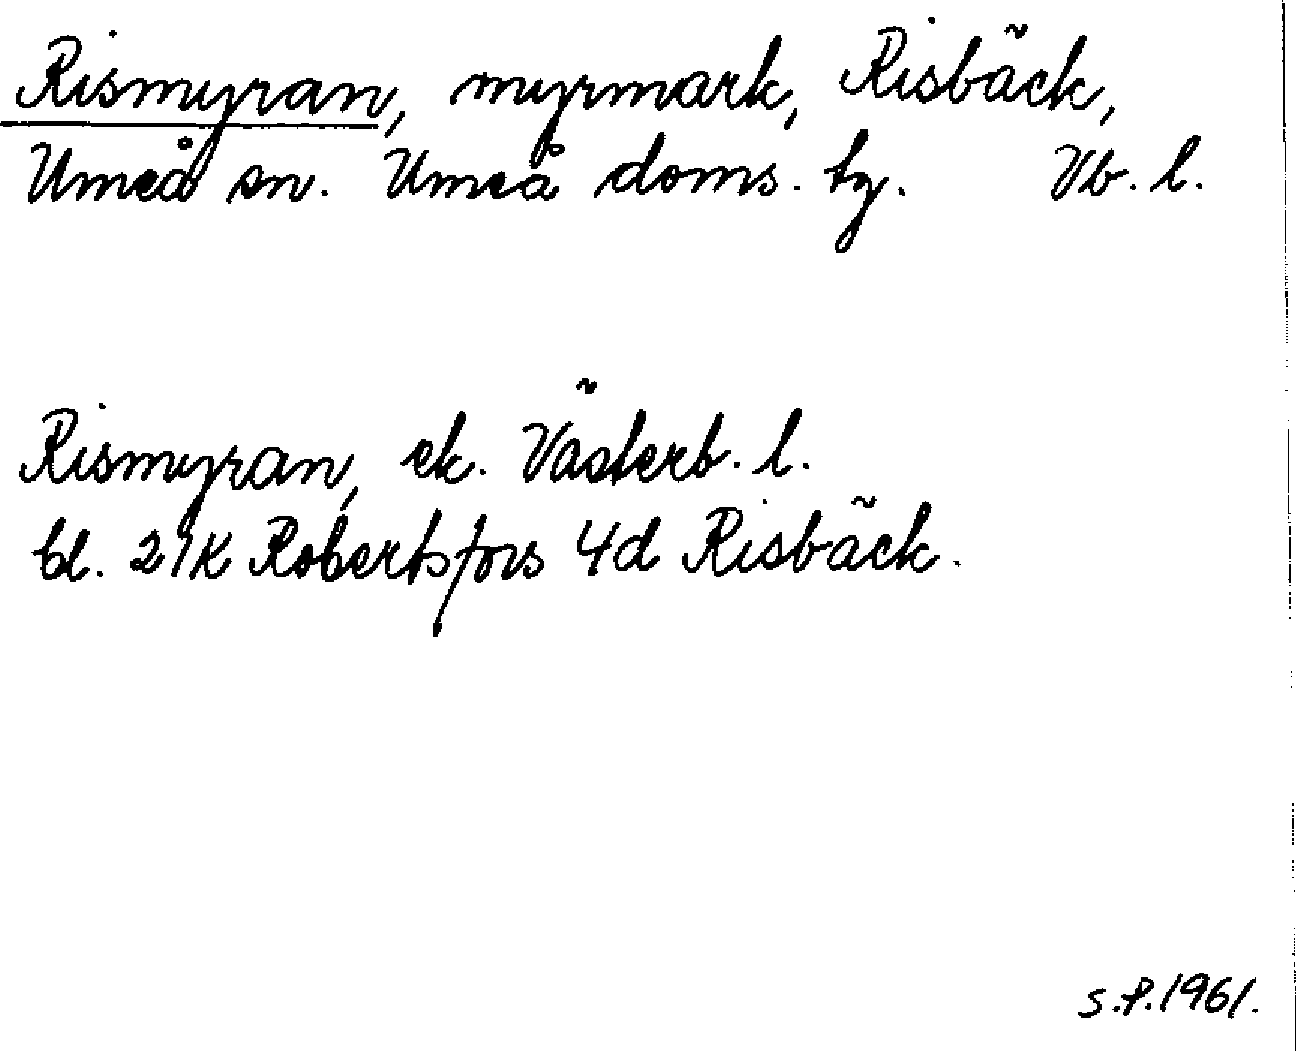 Rismyran, myrmark, Risbäck,
Umeå sn. Umeå doms. tg. Vb. l.
Rismyran, ek. Västerb. l.
bl. 21K Robertsfors 4d Risbäck.
S.P.1961.